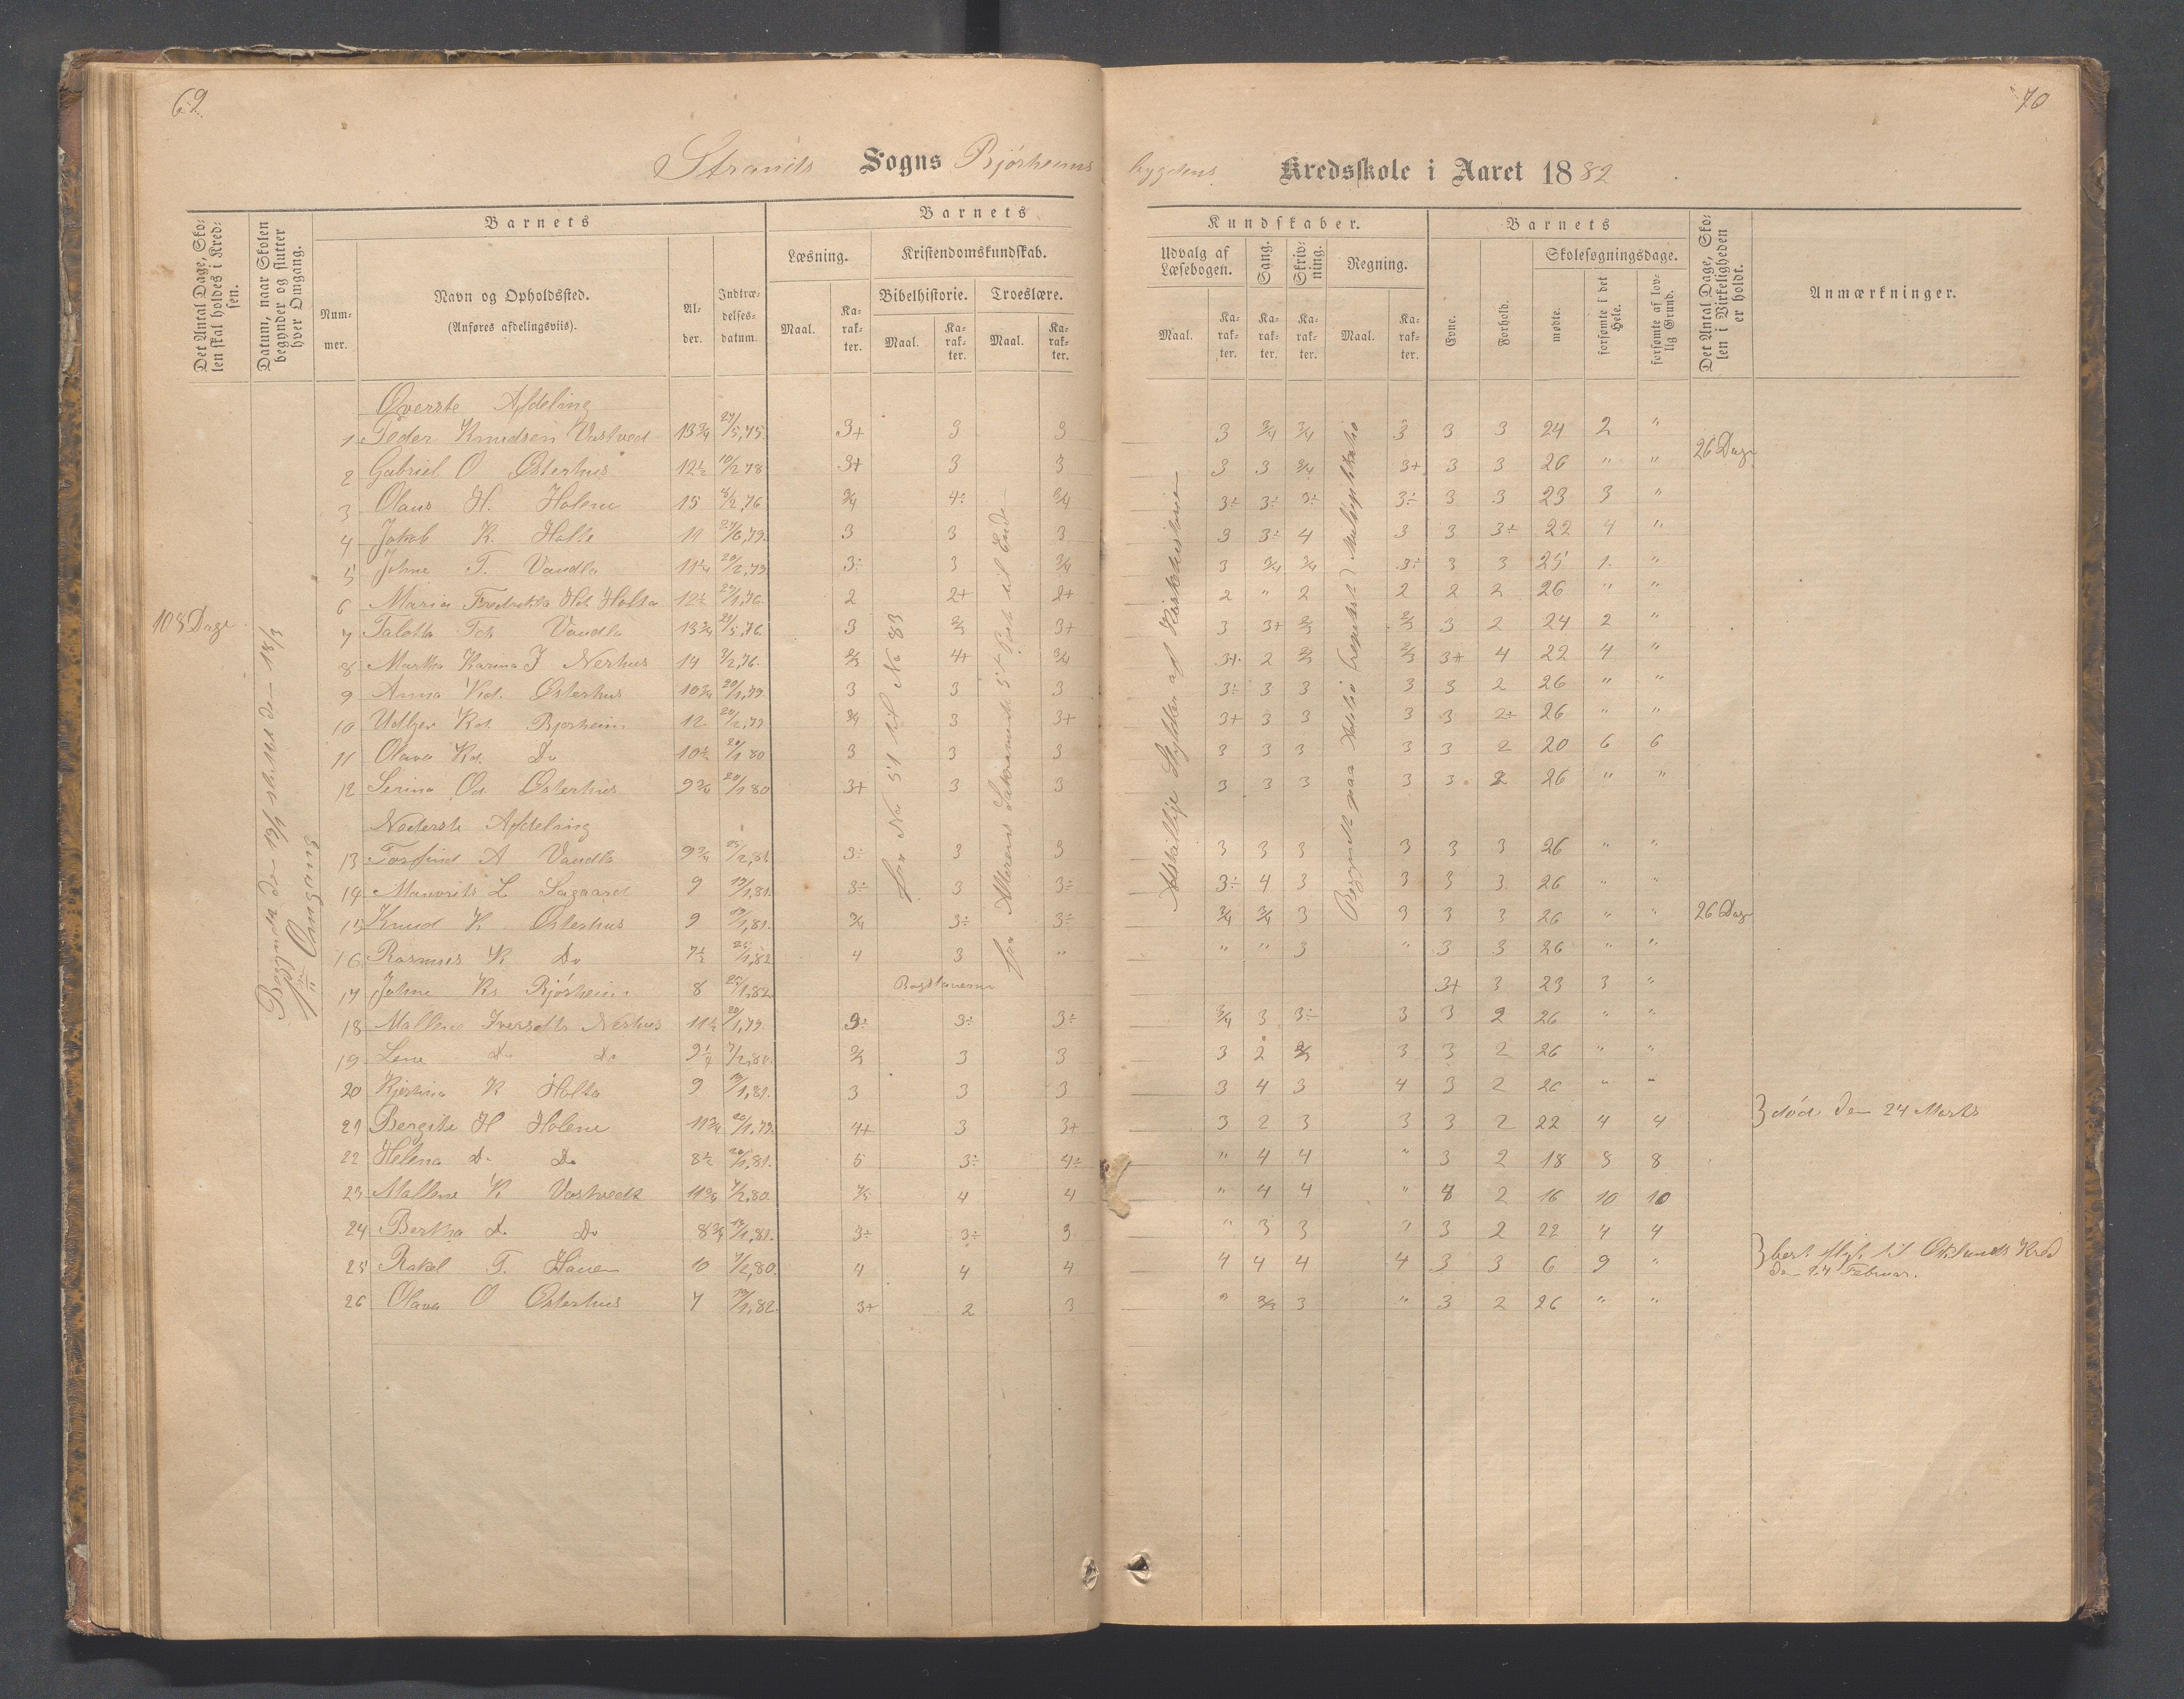 69.
70
Strands Sogns Bjørheims
bygdens Kredsskole i Aaret 1882
Det Antal Dage, Skolen skal holdes i Kredsen.
Datum, naar Skolen begynder og slutter hver Omgang.
Barnets
Nummer.
Navn og Opholdssted.
(Anføres afdelingsviis).
Alder.
Indtrædelsesdatum.
Barnets
Læsning.
Kristendomskundskab.
Bibelhistorie. Troeslære.
Maal. Karakter. Maal. Karakter. Maal. Karakter.
Kundskaber.
Udvalg af Læsebogen. Sang. Skrivning. Regning.
Maal. Karakter. Karakter. Karakter. Maal. Karakter.
Barnets
Evne. Forhold.
Skolesøgningsdage.
mødte. forsømte i det Hele. forsømte af lovlig Grund.
Det Antal Dage, Skolen i Virkeligheden er holdt.
Anmærkninger.
108 Dage
Omgang
Øverste Afdeling
1 Peder Knudsen Vastved 13 3/4 24/5,75. 3+ 3 3 3 3/4 3/4 3 3 3 24 2 "
26 Dage
2 Gabriel O Østerhus 12 1/2 10/2 78 3+ 3 3 3 3 3/4 3+ 3 3 26 " "
3 Olaus H. Holene 15 8/2,76 3/4 4÷ 3/4 3÷ 3÷ 3÷ 3÷ 3 3 23 3 "
4 Jakob K. Holte 11 24/6,79. 3 3 3 3 3÷ 4 3 3 3÷ 22 4 "
5 Johne T. Vaudla 11 1/4 20/2,79 3÷ 3 3/4 3 3/4 3/4 3÷ 3 3 25 1. "
6 Maria Holta 12 1/2 2 2+ 2+ 2 " 2 2 2 2 26 " "
7 Vaudla 13 3/4 3 2/3 3+ 3 3+ 2/3 2/3 3 2 24 2 "
8 Martha Karina J Nerhus 14 3/2,76. 2/3 4+ 3/4 3+ 2 2/3 2/3 3+ 4 22 4 "
9 Anna Kd. Østerhus 10 3/4 20/1,79. 3 3 3 3÷ 3 3 3 3 2 26 " "
10 Kd. Bjørheim 12 20/2,79 3/4 3 3+ 3+ 3 3 3 3 2÷ 26 " "
11 Olava Kd. Do 10 1/2 20/1 80 3 3 3 3 3 3 3 3 2 20 6 6
12 Serina Od. Østerhus 9 3/4 20/1 80 3+ 3 3 3 3 3 3 3 2 26 " "
Nederste Afdeling
13 Torfind A Vaudla 9 3/4 3÷ 3 3 3 3 3 3 3 3 26 " "
14 L Sagaard 9 19/1,81. 3÷ 3 3÷ 3÷ 4 3 3 3 3 26 " "
15 Knud K Østerhus 9 19/1,81. 3/4 3÷ 3÷ 3/4 3/4 3 3 3 3 26 " "
26 Dage
16 Rasmus K Do 7 1/2 25/1,82 4 3 " " " 3 " 3 3 26 " "
17 Johne Ks Bjørheim 8 25/1,82 Bogstaverne 3+ 3 23 3 "
18 Mallene Iversdtr Nerhus 11 1/2 20/1,79. 3÷ 3÷ 3÷ 3/4 3 3÷ 3 3 2 26 " "
19 Lene do Do 2/3 3 3 3 2 2/3 3 3 2 26 " "
20 K Holta 9 19/1,81. 3 3 3 3 4 3 4 3 2 26 " "
21 Bergite H Holene 11 3/4 20/1,79. 4+ 3 3+ 3 2 3 3 3 2 22 4 4
død den 24 Marts
22 Helena D. Do 8 1/2 20/1,81. 5 3÷ 4÷ " 4 4 " 3 2 18 8 8
23 Mallene K Vastvedt 11 3/4 7/2,80. 4/5 4 4 " 4 4 " 4 2 16 10 10
24 Bertha D. Do 8 3/4 19/1,81. 3÷ 3÷ 3 " 3 3 " 3 2 22 4 4
25 Rakel T. 10 7/2,80. 4 4 4 4 4 4 4 3 3 6 9 "
den 24 Februar.
26 Olava O Østerhus 7 19/1,82. 3+ 2 3 " 2/3 3 " 3 2 26 " "
fra No 51 til No 83
fra Alterens Sakramente 5te Part til Ende